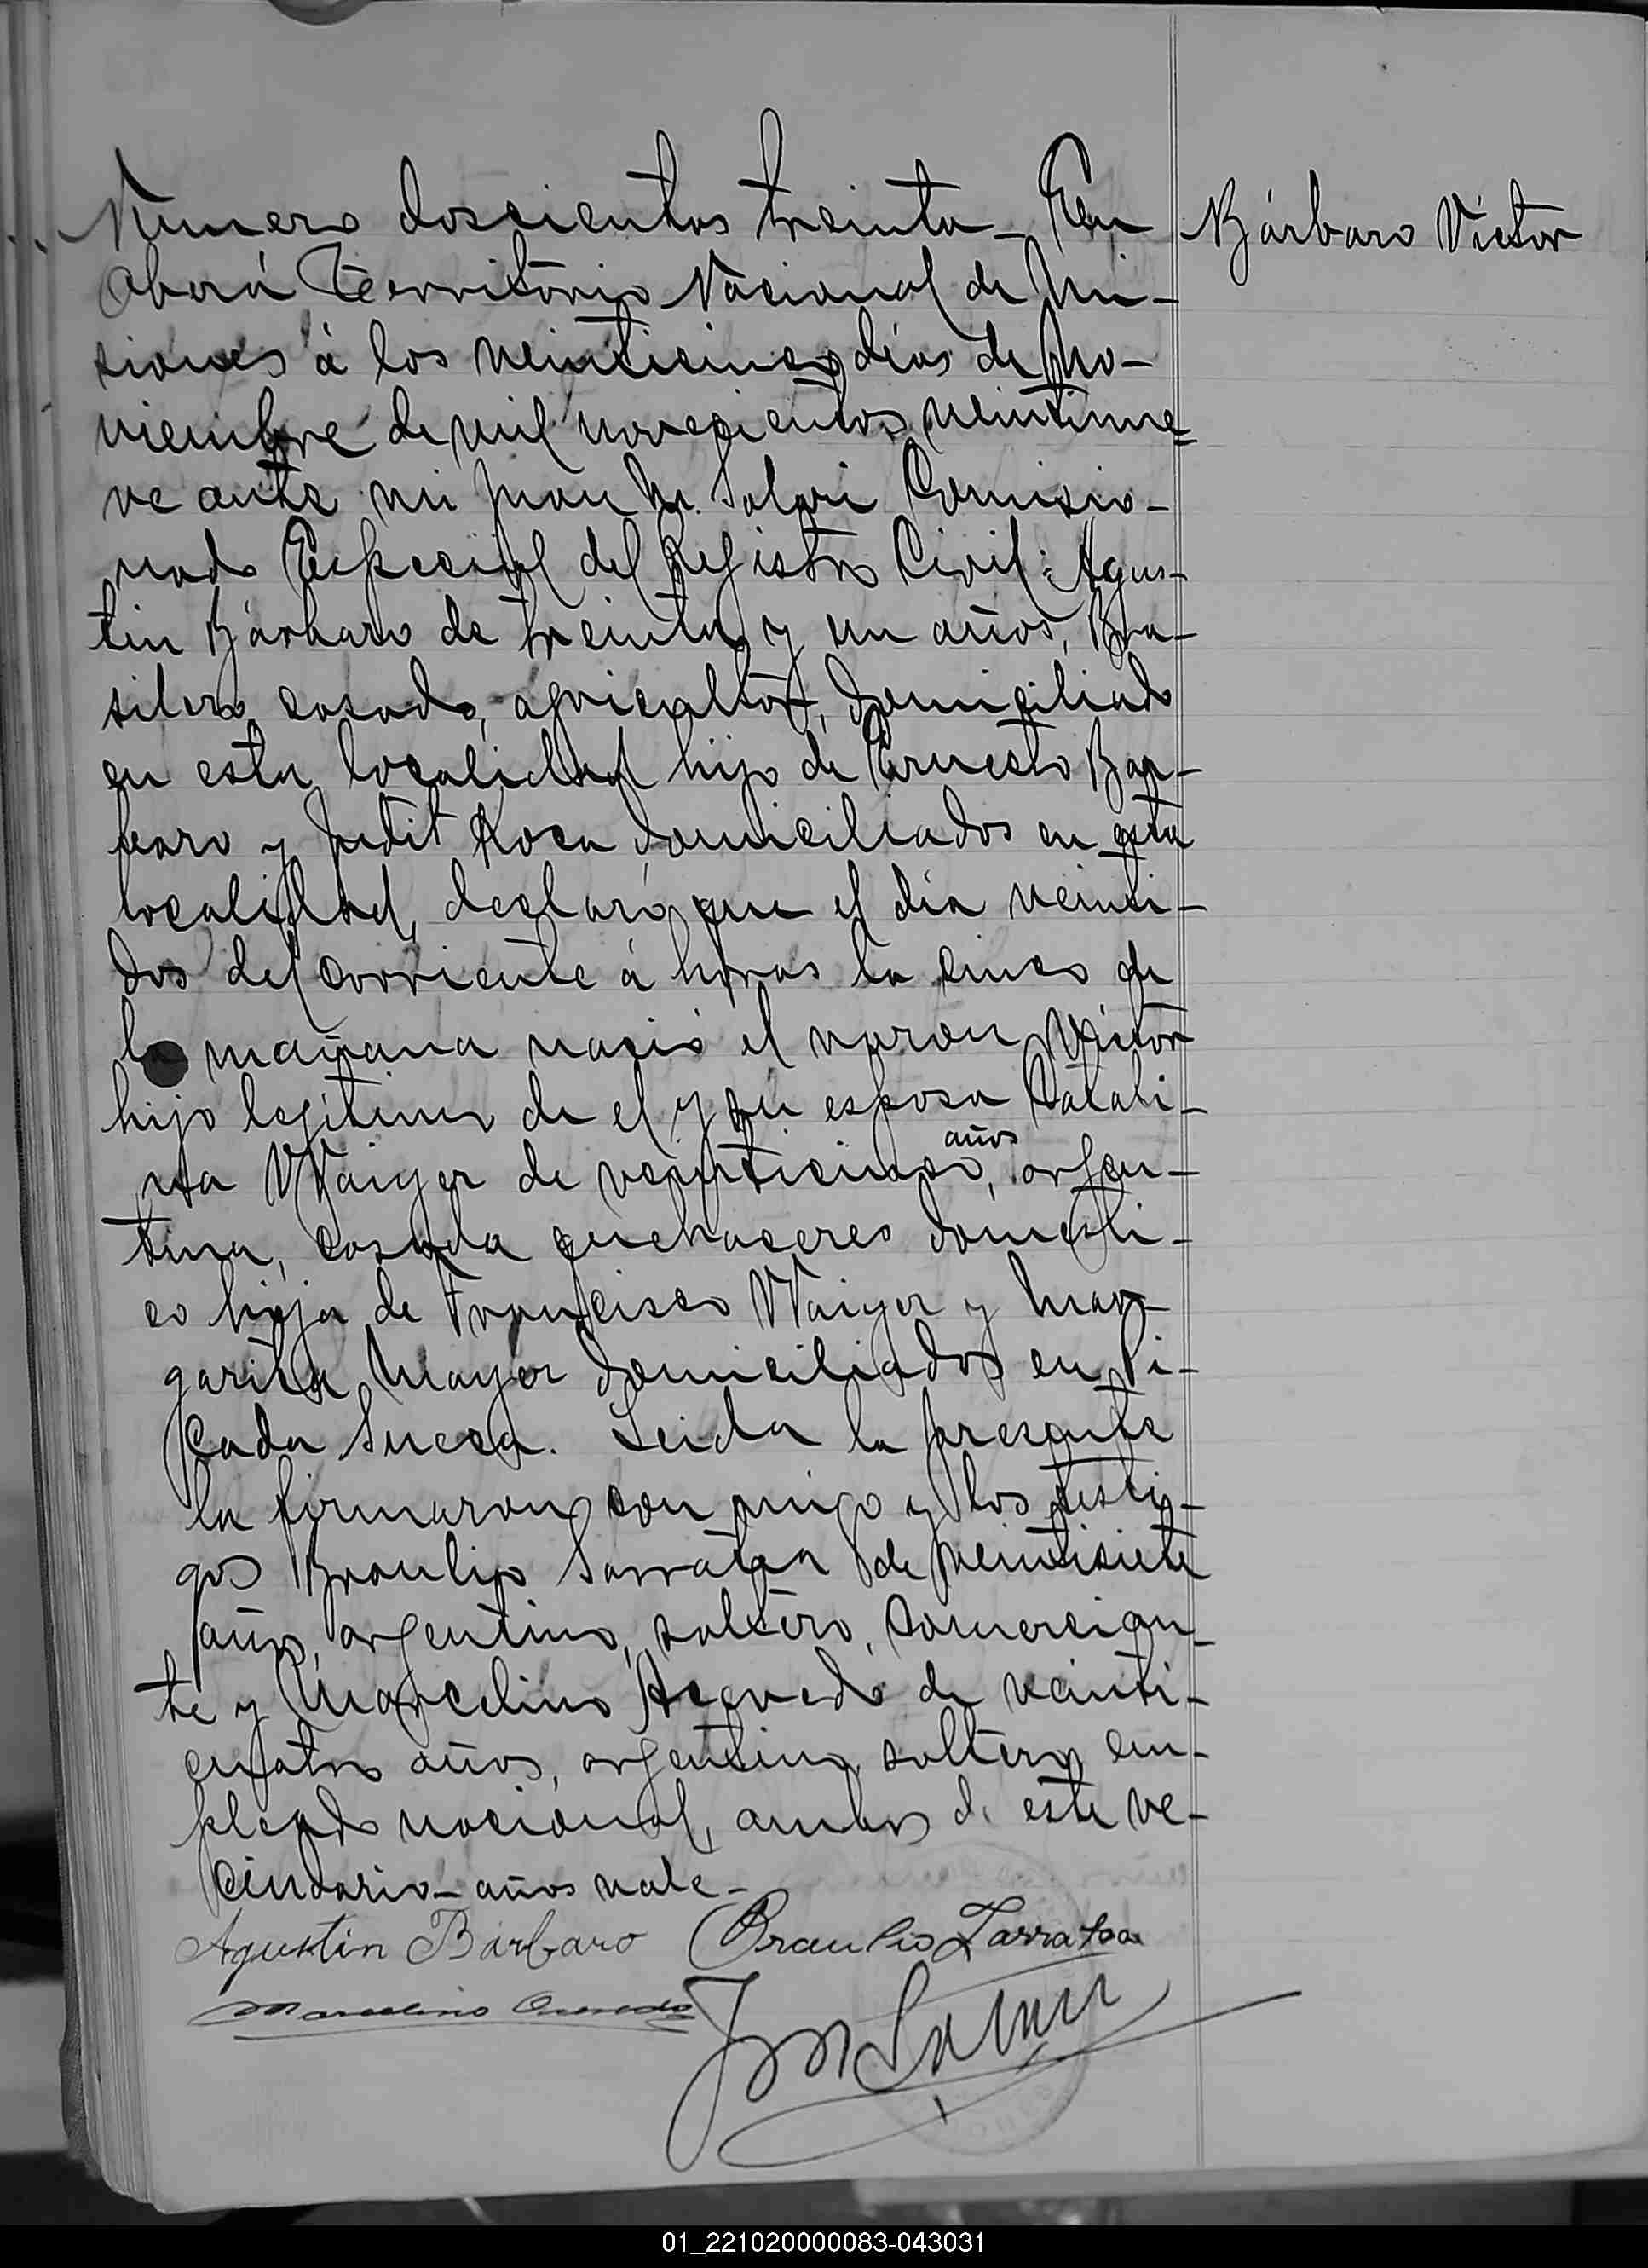 Numero doscientos treinta - En
Bárbaro Víctor
Oberá Territorio Nacional de Mi-
siones á los veinticinco dias de No-
viembre de mil novecientos veintinue=
ve ante mi Juan M. Solari Comisio-
nado Especial del Registro Civil: Agus-
tin Bárbaro de treinta y un años, Bra-
silero casado, agricultor, domiciliado
en esta localidad hijo de Ernesto Bar-
baro y Judit Rosa domiciliados en esta
localidad, declaró que el día veinti-
dos del corriente á horas la cinco de
la mañana nació el varon Victor
hijo legitimo de el y su esposa Catali-
na Waiyer de veinticinco años, argen-
tina, casada quehaceres domesti-
co hija de Francisco Waiyer y Mar-
garita Mayer domiciliados en Pi-
cada Sueca. Leida la presente
la firmaron con migo y los testi-
gos Braulio Sarratea de veintisiete
años, argentino, soltero, comercian-
te y Marcelino Acevedo de veinti-
cuatro años, argentino, soltero em-
pleado nacional, ambos de este ve-
cindario - años vale -
Agustin Bárbaro Braulio Zarratea
Marcelino Acevedo
JMSolari
01_221020000083-043031